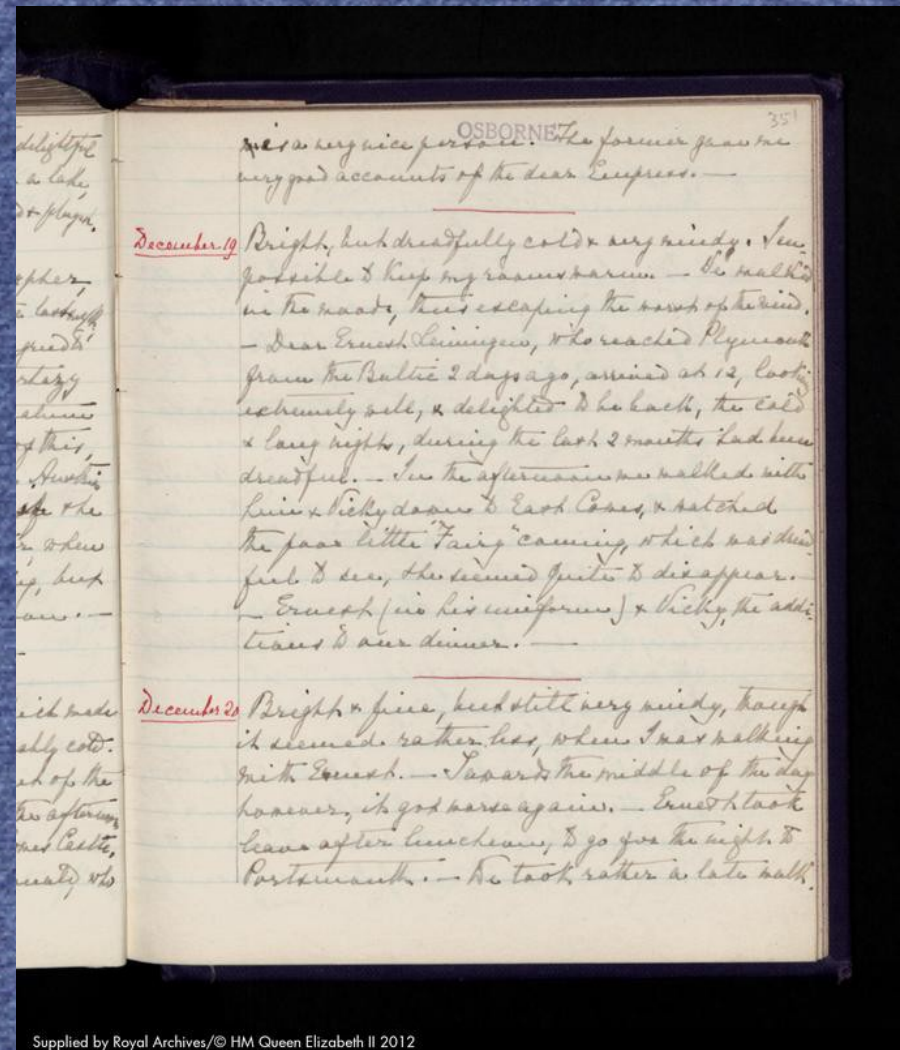 delightful
a lake,
OSBORNE
351
is a very nice person. The former gave me
very good accounts of the dear Empress. —
December 19
Bright, but dreadfully cold & very windy. Im-
possible to keep my rooms warm. — We walked
in the woods, thus escaping the worst of the wind.
— Dear Ernest Leiningen, who reached Plymouth
from the Baltic 2 days ago, arrived at 12, looking
extremely well, & delighted to be back, the cold
& long nights, during the last 2 months had been
dreadful. — In the afternoon we walked with
him & Vicky down to East Cowes, & watched
the poor little "Fairy" coming, which was dread-
ful to see, she seemed quite to disappear.
— Ernest (in his uniform) & Vicky, the addi-
tions to our dinner. —
December 20
Bright & fine, but still very windy, though
it seemed rather less, when I was walking
with Ernest. — Towards the middle of the day
however, it got worse again. — Ernest took
leave after luncheon, to go for the night to
Portsmouth. — We took rather a late walk.
of this,
& the
when
but
made
cold.
of the
Castle,
who
Supplied by Royal Archives/© HM Queen Elizabeth II 2012